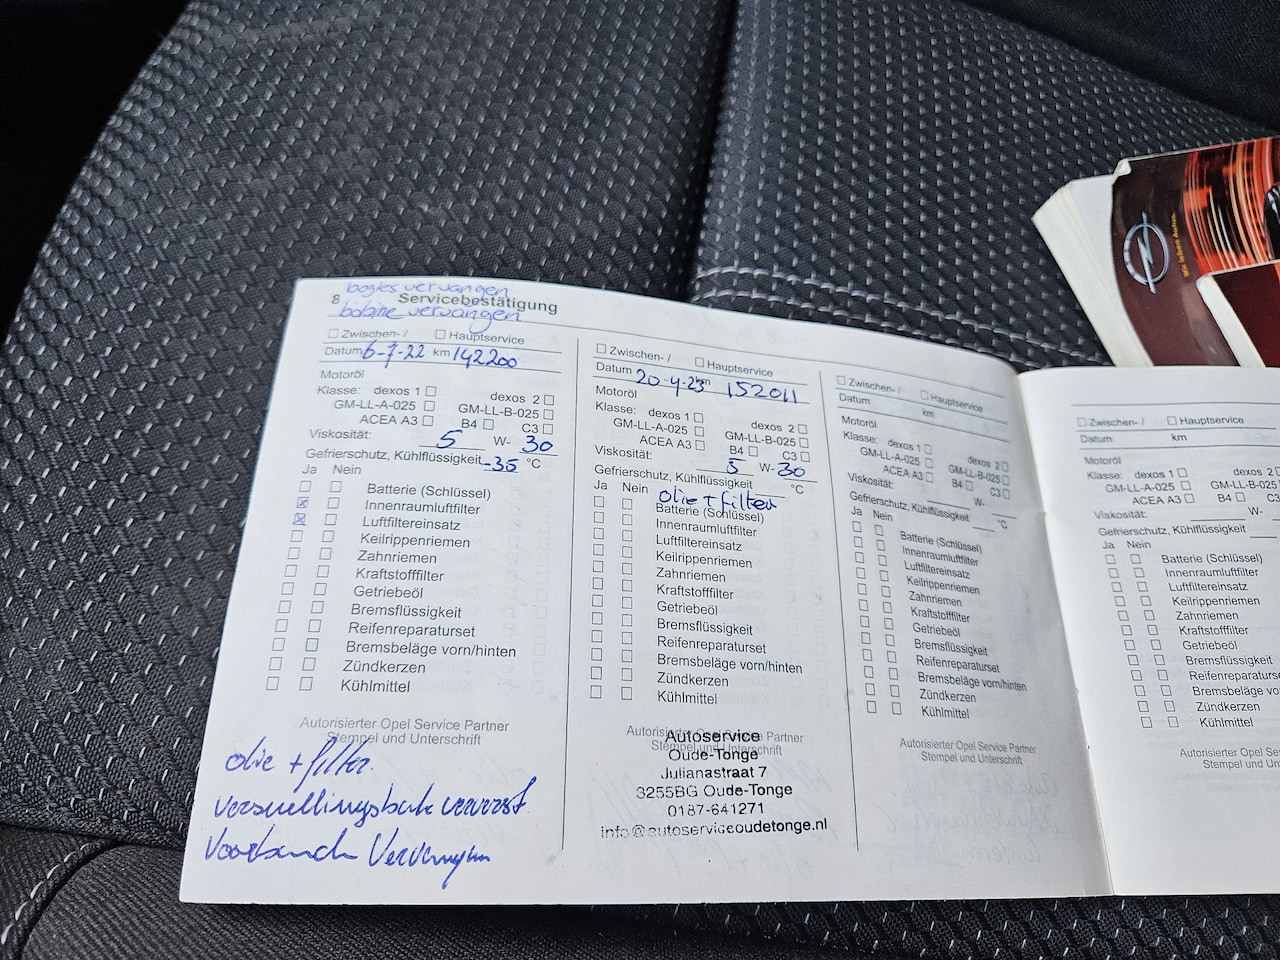 bogies vervangen
8 Servicebestätigung
bobine vervangen
Zwischen- / Hauptservice
Datum 6-7-22 km 142200
Motoröl
Klasse: dexos 1 dexos 2
GM-LL-A-025 GM-LL-B-025
ACEA A3 B4 C3
Viskosität: 5 W- 30
Gefrierschutz, Kühlflüssigkeit -35 °C
Ja Nein
Batterie (Schlüssel)
Innenraumluftfilter
Luftfiltereinsatz
Keilrippenriemen
Zahnriemen
Kraftstofffilter
Getriebeöl
Bremsflüssigkeit
Reifenreparaturset
Bremsbeläge vorn/hinten
Zündkerzen
Kühlmittel
Autorisierter Opel Service Partner
Stempel und Unterschrift
olie + filter.
versnellingsbak ververst
Voorbanden Vervangen
Zwischen- / Hauptservice
Datum 20-4-23 km 152011
Motoröl
Klasse: dexos 1 dexos 2
GM-LL-A-025 GM-LL-B-025
ACEA A3 B4 C3
Viskosität: 5 W- 30
Gefrierschutz, Kühlflüssigkeit °C
Ja Nein olie + filter
Batterie (Schlüssel)
Innenraumluftfilter
Luftfiltereinsatz
Keilrippenriemen
Zahnriemen
Kraftstofffilter
Getriebeöl
Bremsflüssigkeit
Reifenreparaturset
Bremsbeläge vorn/hinten
Zündkerzen
Kühlmittel
Autorisierter Opel Service Partner
Stempel und Unterschrift
Autoservice
Oude-Tonge
Julianastraat 7
3255BG Oude-Tonge
0187-641271
info@autoserviceoudetonge.nl
Zwischen- / Hauptservice
Datum km
Motoröl
Klasse: dexos 1 dexos 2
GM-LL-A-025 GM-LL-B-025
ACEA A3 B4 C3
Viskosität: W-
Gefrierschutz, Kühlflüssigkeit °C
Ja Nein
Batterie (Schlüssel)
Innenraumluftfilter
Luftfiltereinsatz
Keilrippenriemen
Zahnriemen
Kraftstofffilter
Getriebeöl
Bremsflüssigkeit
Reifenreparaturset
Bremsbeläge vorn/hinten
Zündkerzen
Kühlmittel
Autorisierter Opel Service Partner
Stempel und Unterschrift
Zwischen- / Hauptservice
Datum km
Motoröl
Klasse: dexos 1 dexos 2
GM-LL-A-025 GM-LL-B-025
ACEA A3 B4 C3
Viskosität: W-
Gefrierschutz, Kühlflüssigkeit
Ja Nein
Batterie (Schlüssel)
Innenraumluftfilter
Luftfiltereinsatz
Keilrippenriemen
Zahnriemen
Kraftstofffilter
Getriebeöl
Bremsflüssigkeit
Reifenreparaturset
Bremsbeläge vo
Zündkerzen
Kühlmittel
Autorisierter Opel Se
Stempel und Unters
Wir leben Autos.